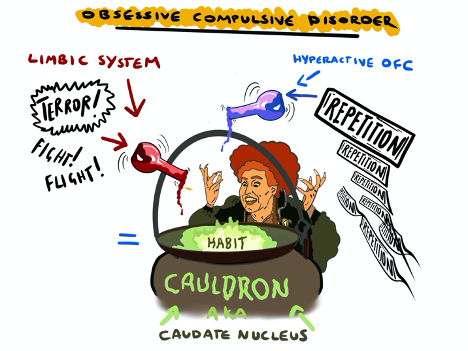 OBSESSIVE COMPULSIVE DISORDER
LIMBIC SYSTEM
HYPERACTIVE OFC
TERROR!
FIGHT!
FLIGHT!
REPETITION!
REPETITION!
REPETITION!
REPETITION!
REPETITION!
REPETITION!
=
HABIT
CAULDRON
AKA
CAUDATE NUCLEUS